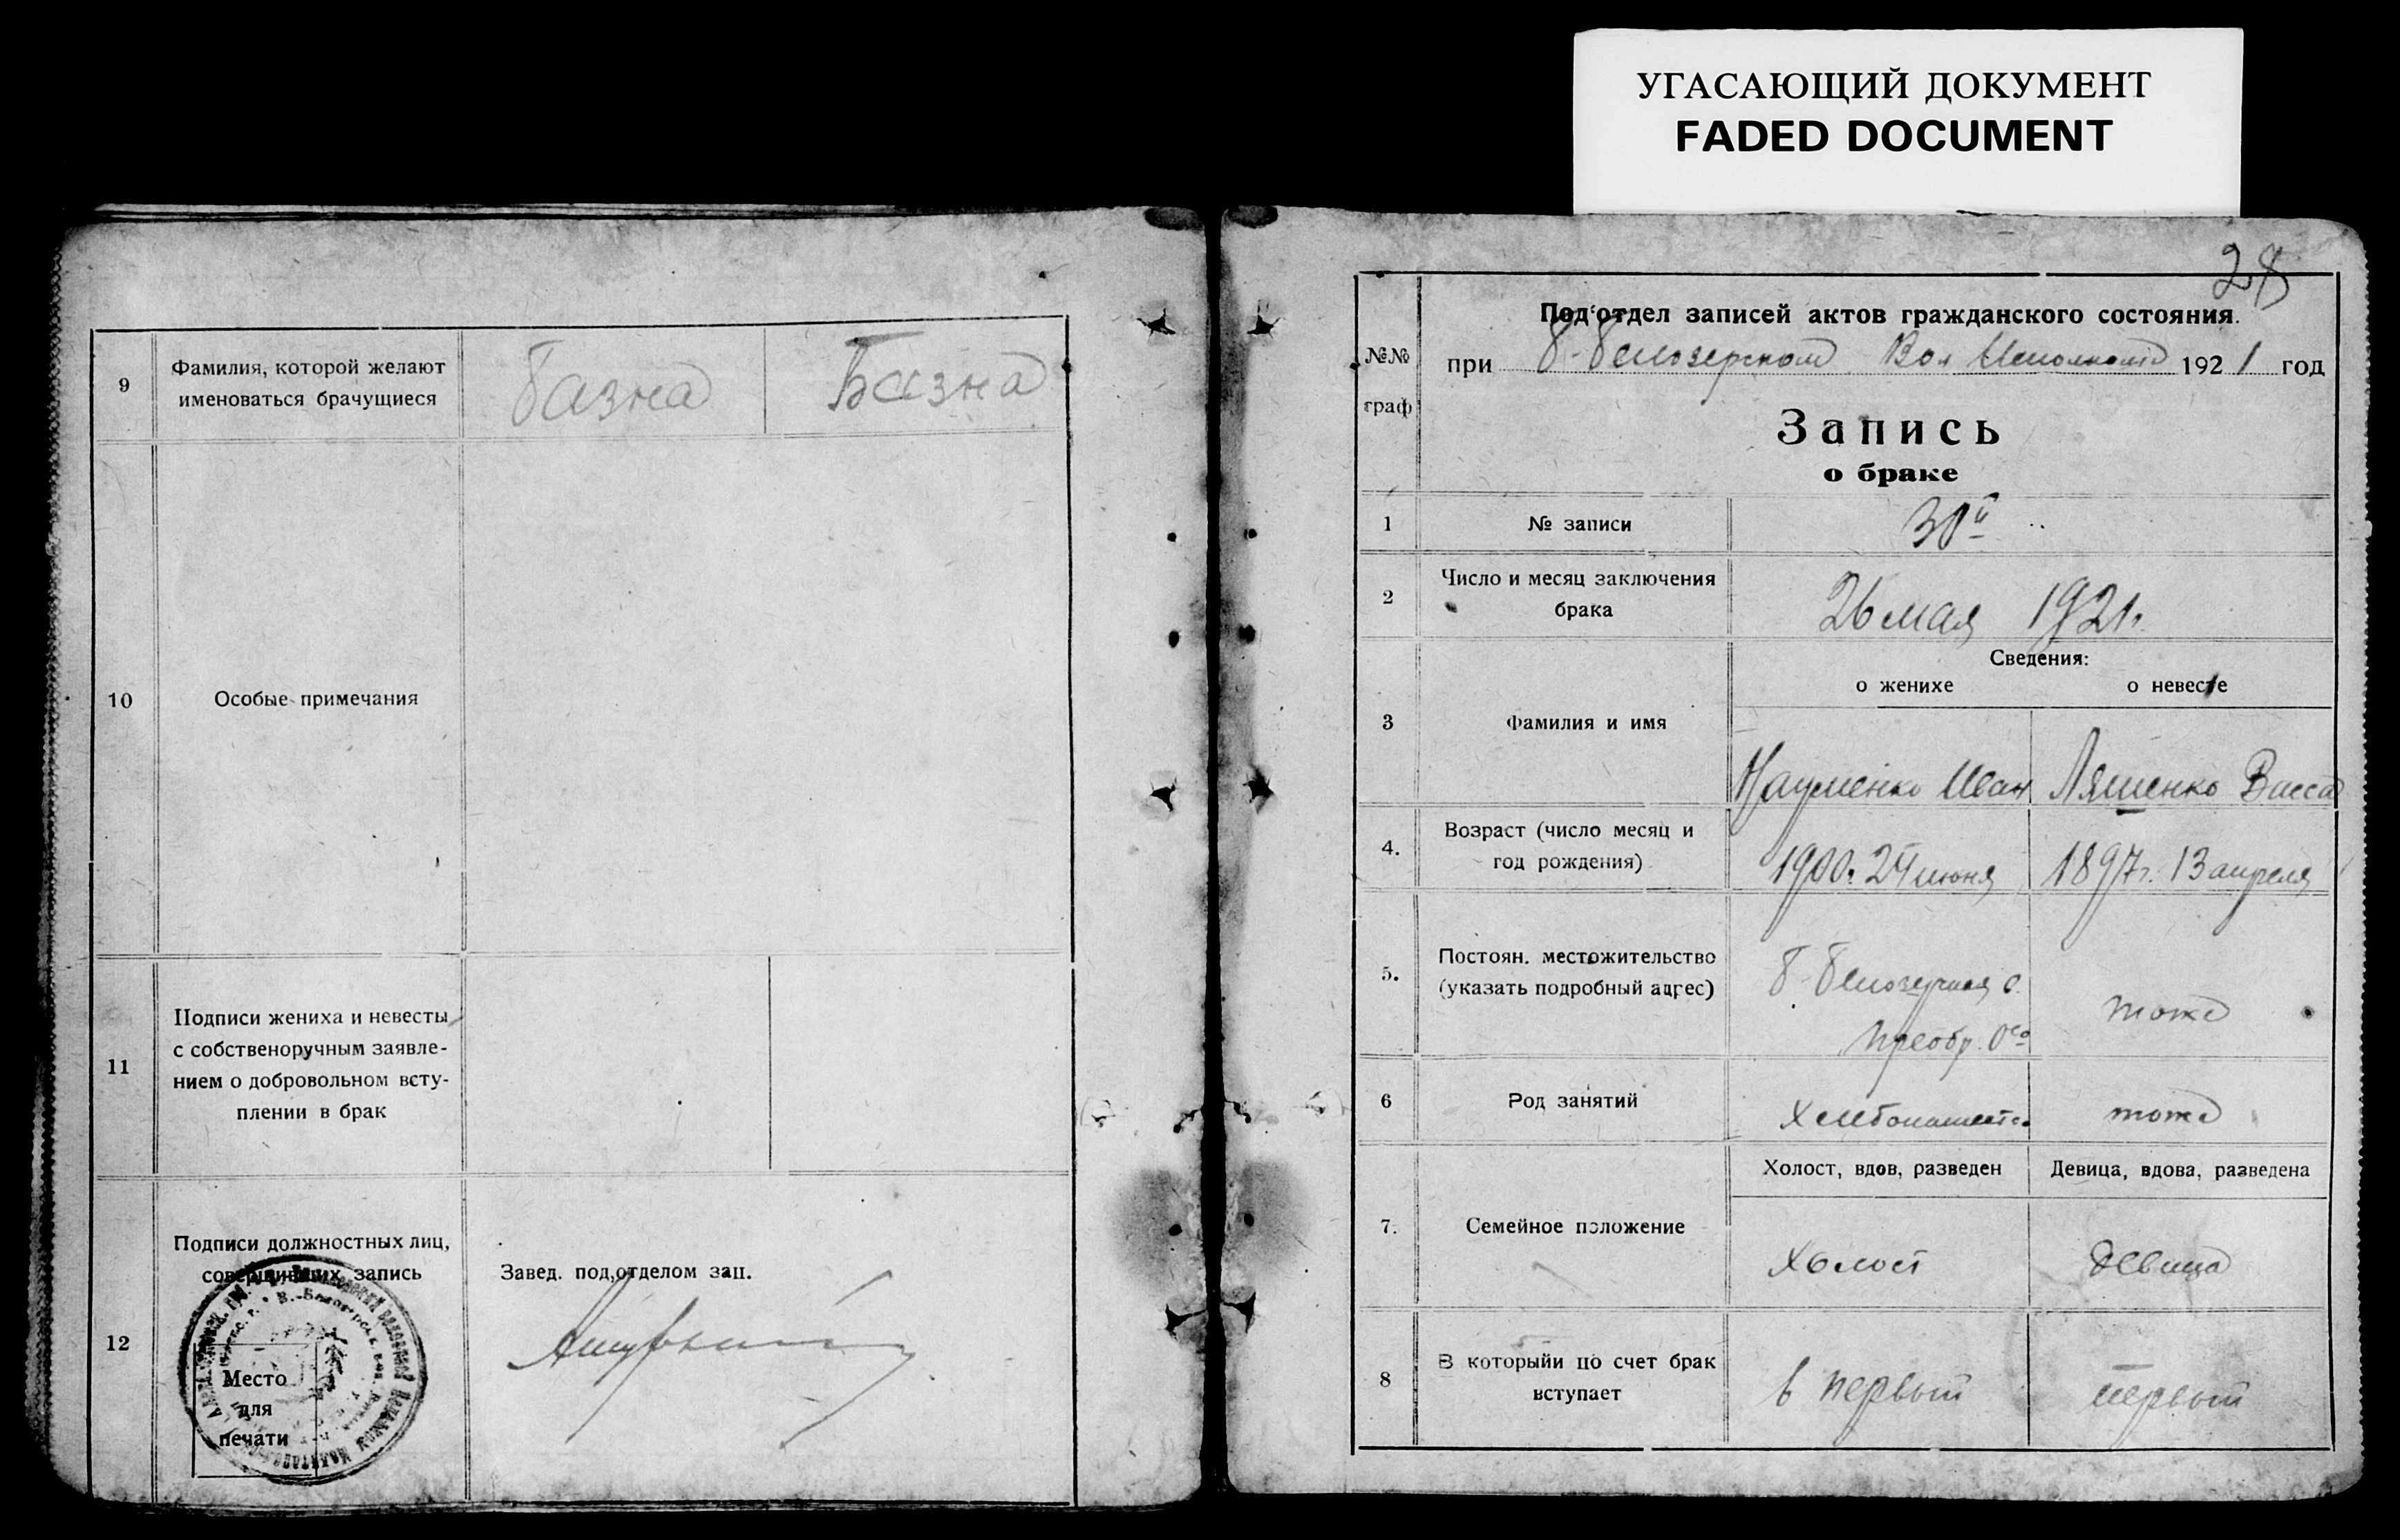 УГАСАЮЩИЙ ДОКУМЕНТ
FADED DOCUMENT
9
Фамилия, которой желают
именоваться брачущиеся
Базна
Базна
10
Особые примечания
11
Подписи жениха и невесты
с собственоручным заявле-
нием о добровольном всту-
плении в брак
12
Подписи должностных лиц,
совершивших запись
Место
для
печати
Завед. под,отделом зап.
28
№№
граф
Под'отдел записей актов гражданского состояния.
при Б-Белозерском Вол Исполкоме 1921 год
Запись
о браке
1
№ записи
30й
2
Число и месяц заключения
брака
26 мая 1921г.
3
Фамилия и имя
Сведения:
о женихе
о невесте
Науменко Иван
Ляшенко Васса
4.
Возраст (число месяц и
год рождения)
1900г. 24 июня
1897г. 13 апреля
5.
Постоян. местожительство
(указать подробный адрес)
Б-Белозерка с.
Преобр. О-во
тоже
6
Род занятий
тоже
7.
Семейное положение
Холост, вдов, разведен
Девица, вдова, разведена
холост
девица
8
В которыйи по счет брак
вступает
в первый
первый